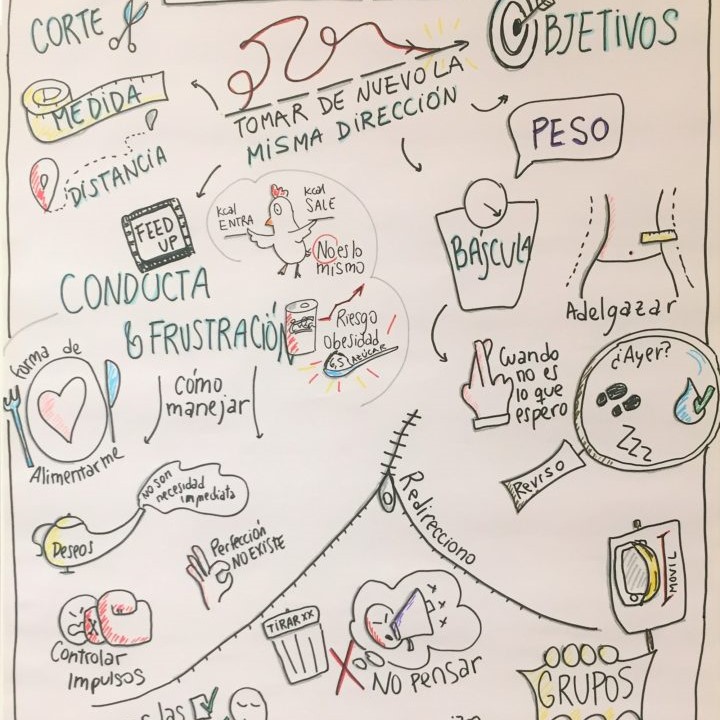 CORTE
OBJETIVOS
MEDIDA
TOMAR DE NUEVO LA
MISMA DIRECCIÓN
PESO
DISTANCIA
FEED
UP
Kcal
ENTRA
Kcal
SALE
No es lo
mismo
BÁSCULA
Adelgazar
CONDUCTA
& FRUSTRACIÓN
Riesgo
obesidad
6,5 AZÚCAR
Forma de
Alimentarme
cómo
manejar
Cuando
no es
lo que
espero
¿Ayer?
ZZZ
Reviso
NO SON
necesidad
inmediata
Deseos
Perfección
NO EXISTE
Redirecciono
MÓVIL
Controlar
Impulsos
TIRAR XX
X X X
NO Pensar
GRUPOS
las